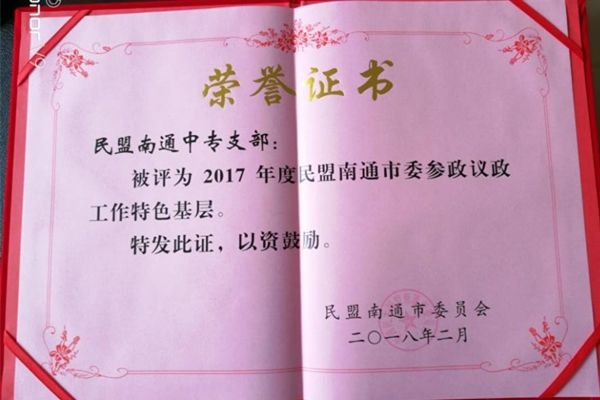 honor 9
荣誉证书
民盟南通中专支部：
被评为 2017 年度民盟南通市委参政议政
工作特色基层。
特发此证，以资鼓励。
民盟南通市委员会
二〇一八年二月